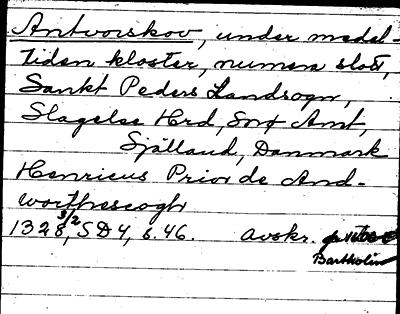 Antvorskov, under medel-
tiden kloster, numera slott,
Sankt Peders Landsogn,
Slagelse Hrd, Sorø Amt,
Själland, Danmark
Henricus Prior de And-
worthescogh
1328 3/2, SD4, s. 46. avskr.
Bartholin